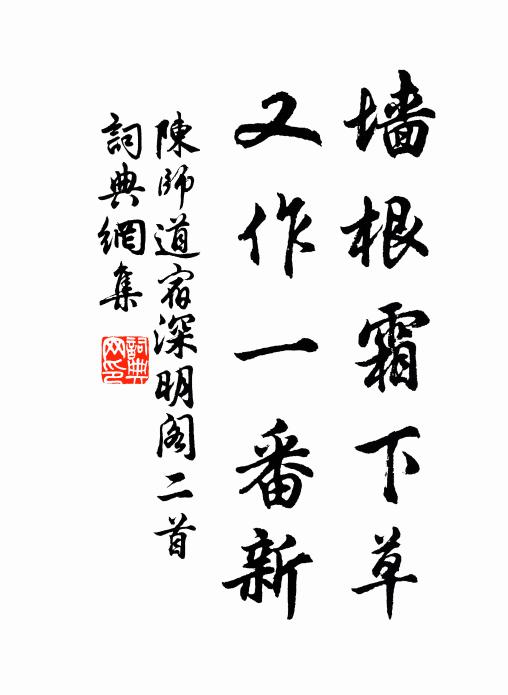 墙根霜下草
又作一番新
陳師道宿深明阁二首
詞典網集
詞典網印